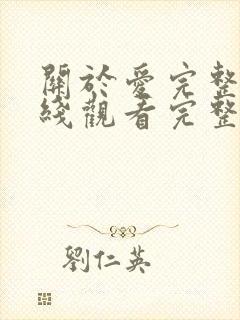 關於愛完整
綫觀看完整
劉仁英